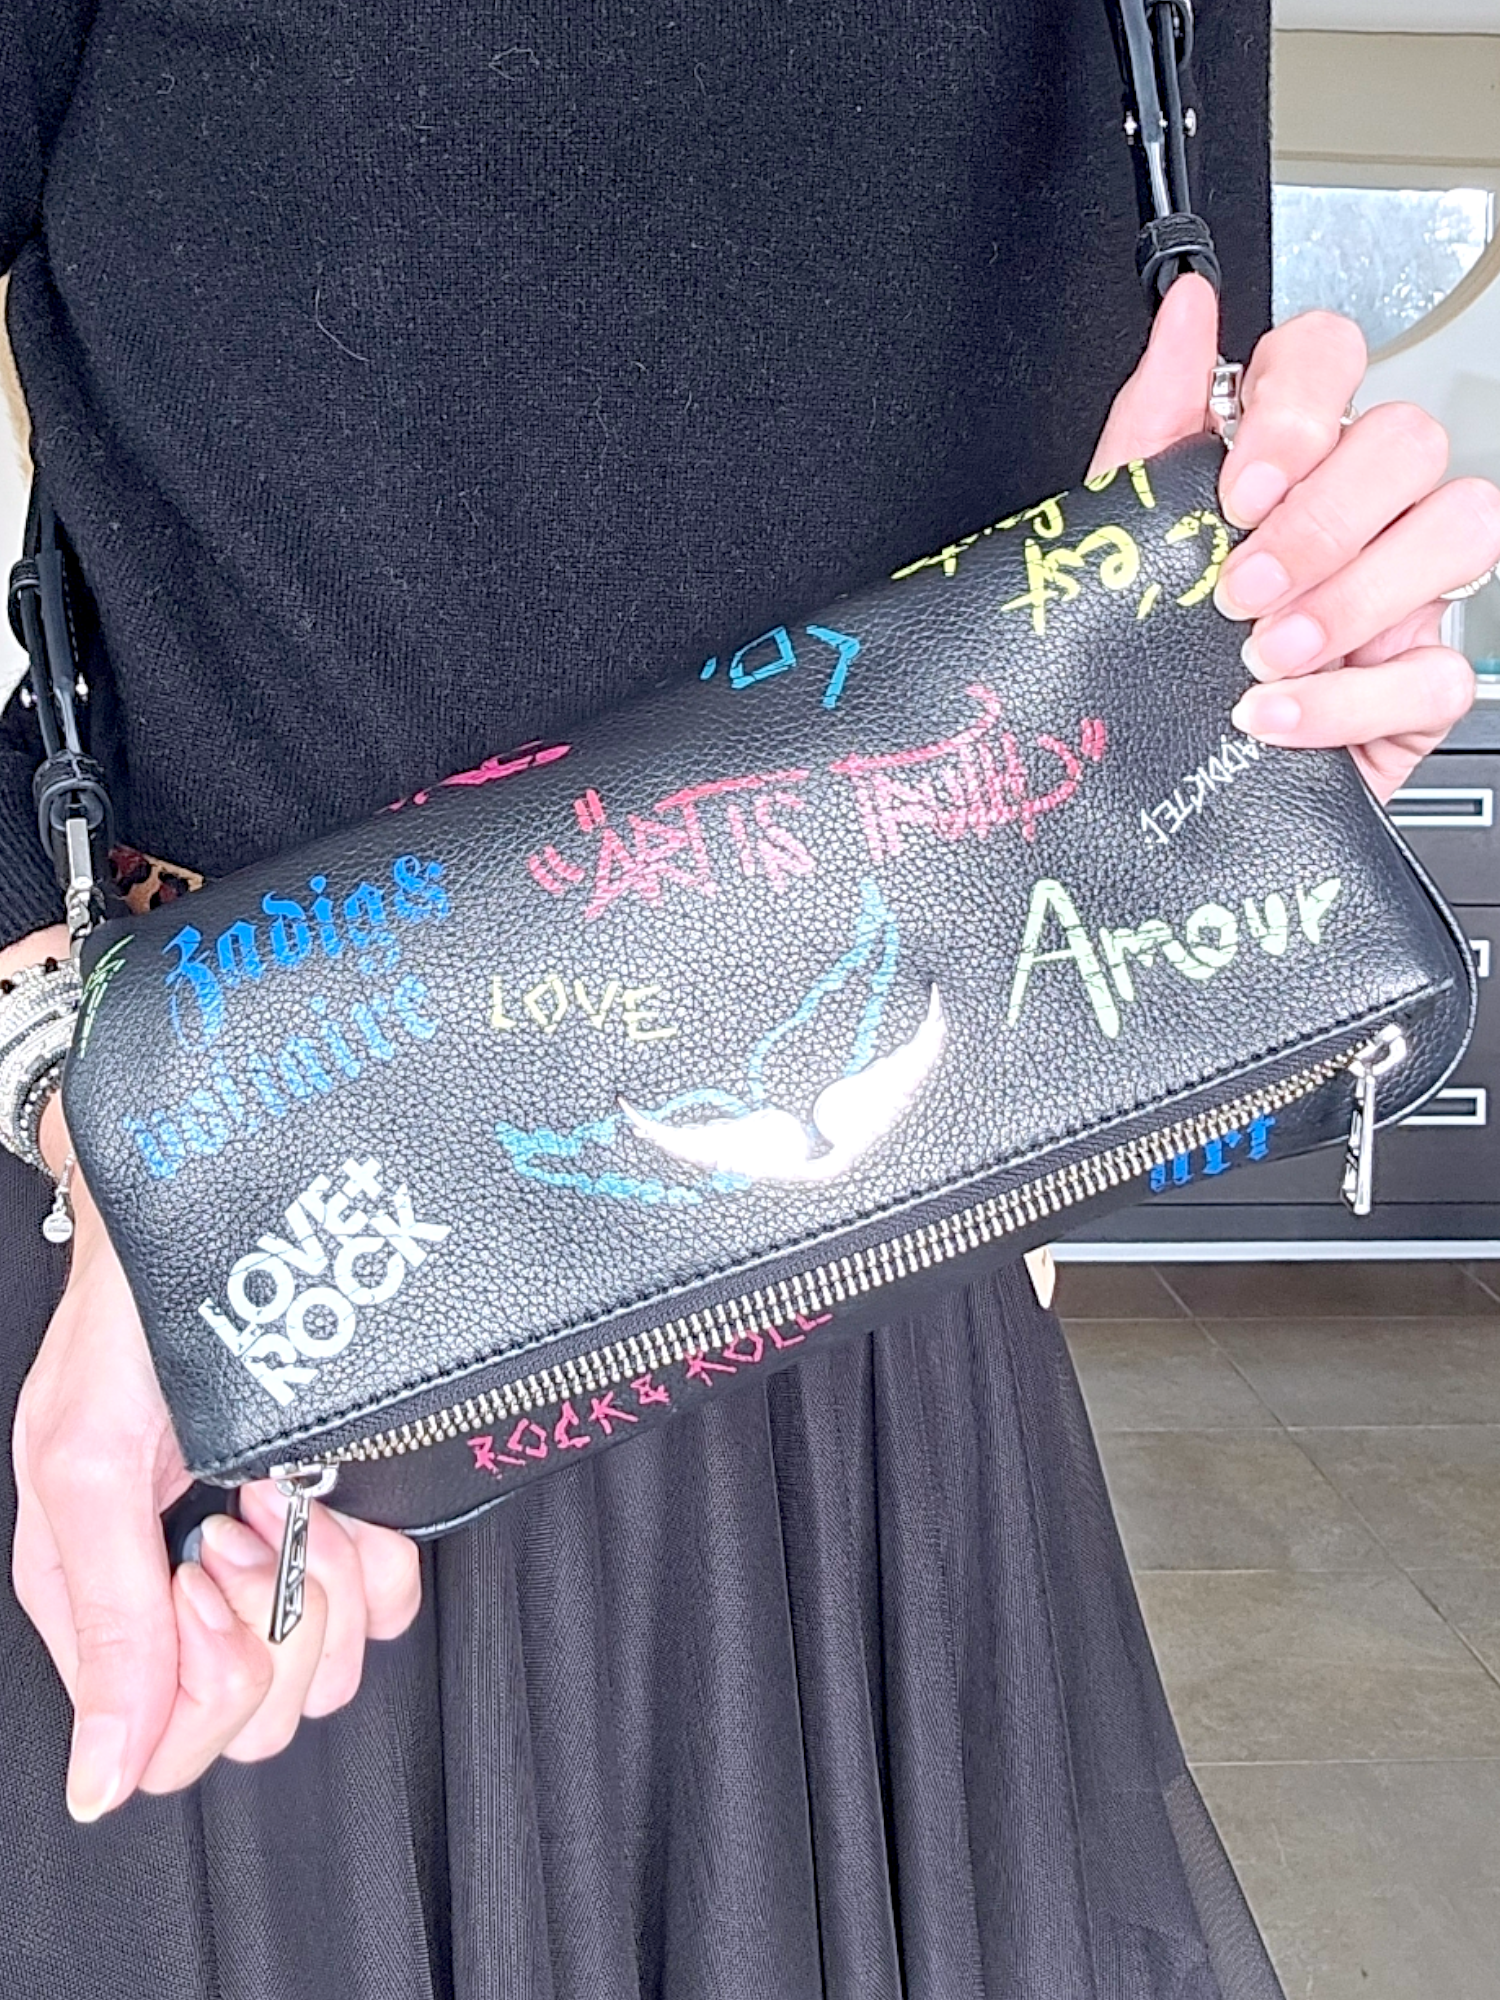 C'est
"ART IS TRUTH"
ADDICTED
Zadig&
Voltaire
LOVE
Amour
LOVE+
ROCK
art
ROCK & ROLL